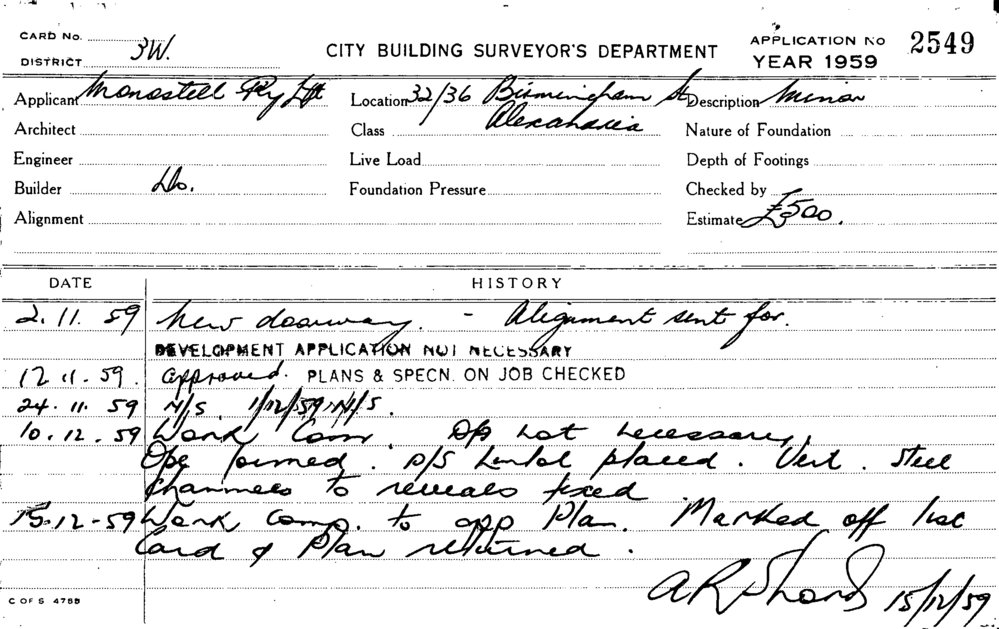 CARD No.
DISTRICT 3W.
CITY BUILDING SURVEYOR'S DEPARTMENT
APPLICATION No 2549
YEAR 1959
Applicant Monosteel Pty Ltd Location 32/36 Birmingham St Description Minor
Alexandria
Architect Class Nature of Foundation
Engineer Live Load Depth of Footings
Builder Do. Foundation Pressure Checked by
Alignment Estimate £500.
DATE HISTORY
2.11.59 New doorway. - Alignment sent for.
DEVELOPMENT APPLICATION NOT NECESSARY
12.11.59. Approved. PLANS & SPECN. ON JOB CHECKED
24.11.59 N/S. 1/12/59. N/S.
10.12.59 Work Com. not necessary.
Opg formed. D/S Lintol placed. Vert. Steel
Channels to reveals fixed.
15.12-59 Work Comp. to app Plan. Marked off list
Card & Plan returned.
15/12/59
C OF S 4788